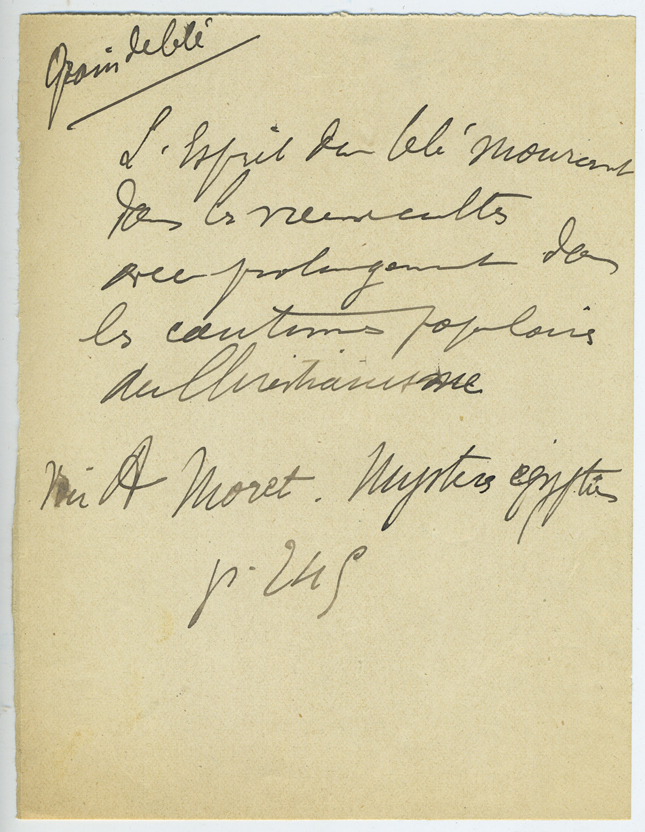 Grain de blé
L'Esprit du blé mourant
dans les vieux cultes
avec prolongement dans
les coutumes populaires
du Christianisme
Voir A Moret. Mystères égyptiens
p. 245